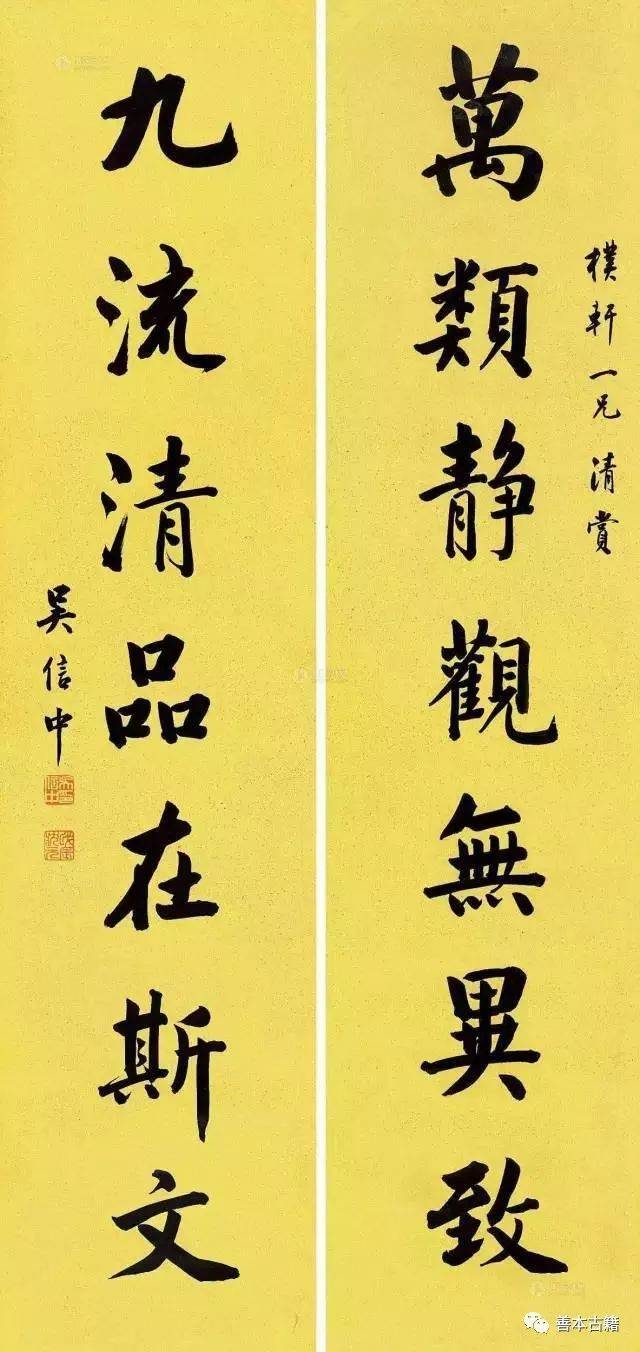 樸軒一兄清賞
萬類静觀無異致
九流清品在斯文
吴信中
善本古籍